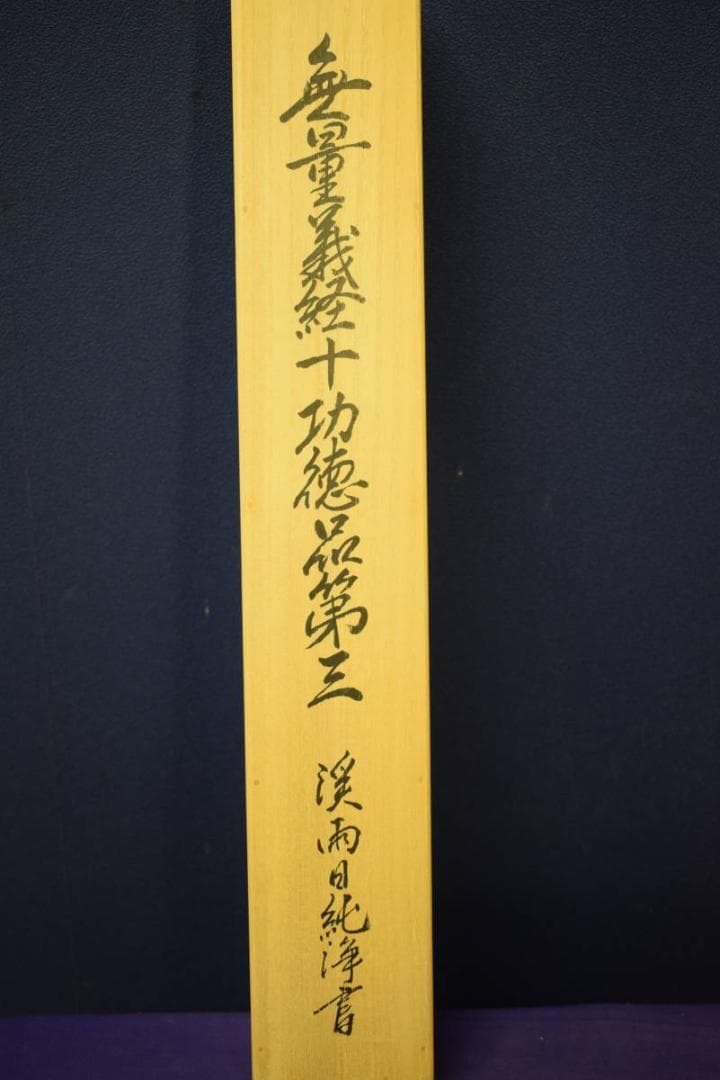 無量義経十功徳品第三
渓雨日純浄書